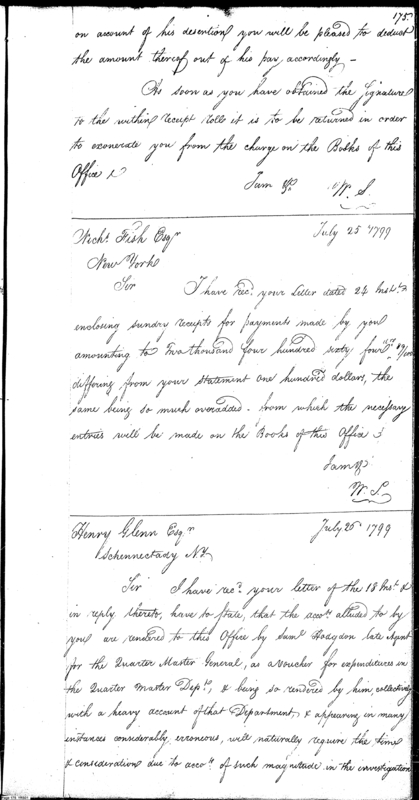 175
on account of his desertion you will be pleased to deduct
the amount thereof out of his pay, accordingly –
As soon as you have obtained the Signature
to the within receipt rolls it is to be returned in order
to exonerate you from the charge on the Books of this
Office &
I am &c W. S.
Nichs. Fish Esqr July 25 1799
New York
Sir I have recd. your Letter dated 24 Inst. &
enclosing sundry receipts for payments made by you
amounting to Two thousand four hundred sixty four
differing from your statement one hundred dollars, the
same being so much overadded. from which the necessary
entries will be made on the Books of this Office &
I am &c
W. S.
Henry Glenn Esqr July 25 1799
Schennectady NY
Sir I have recd. your letter of the 18 Inst. &
in reply thereto, have to state, that the accots. alluded to by
you are rendered to this Office by Saml Hodgdon late Agent
for the Quarter Master General, as a Voucher for expenditures in
the Quarter Master Dept., & being so rendered by him, collectively
with a heavy account of that Department, & appearing in many
instances considerably erroneous, will naturally require the time
& consideration due to accots. of such magnitude in the investigation